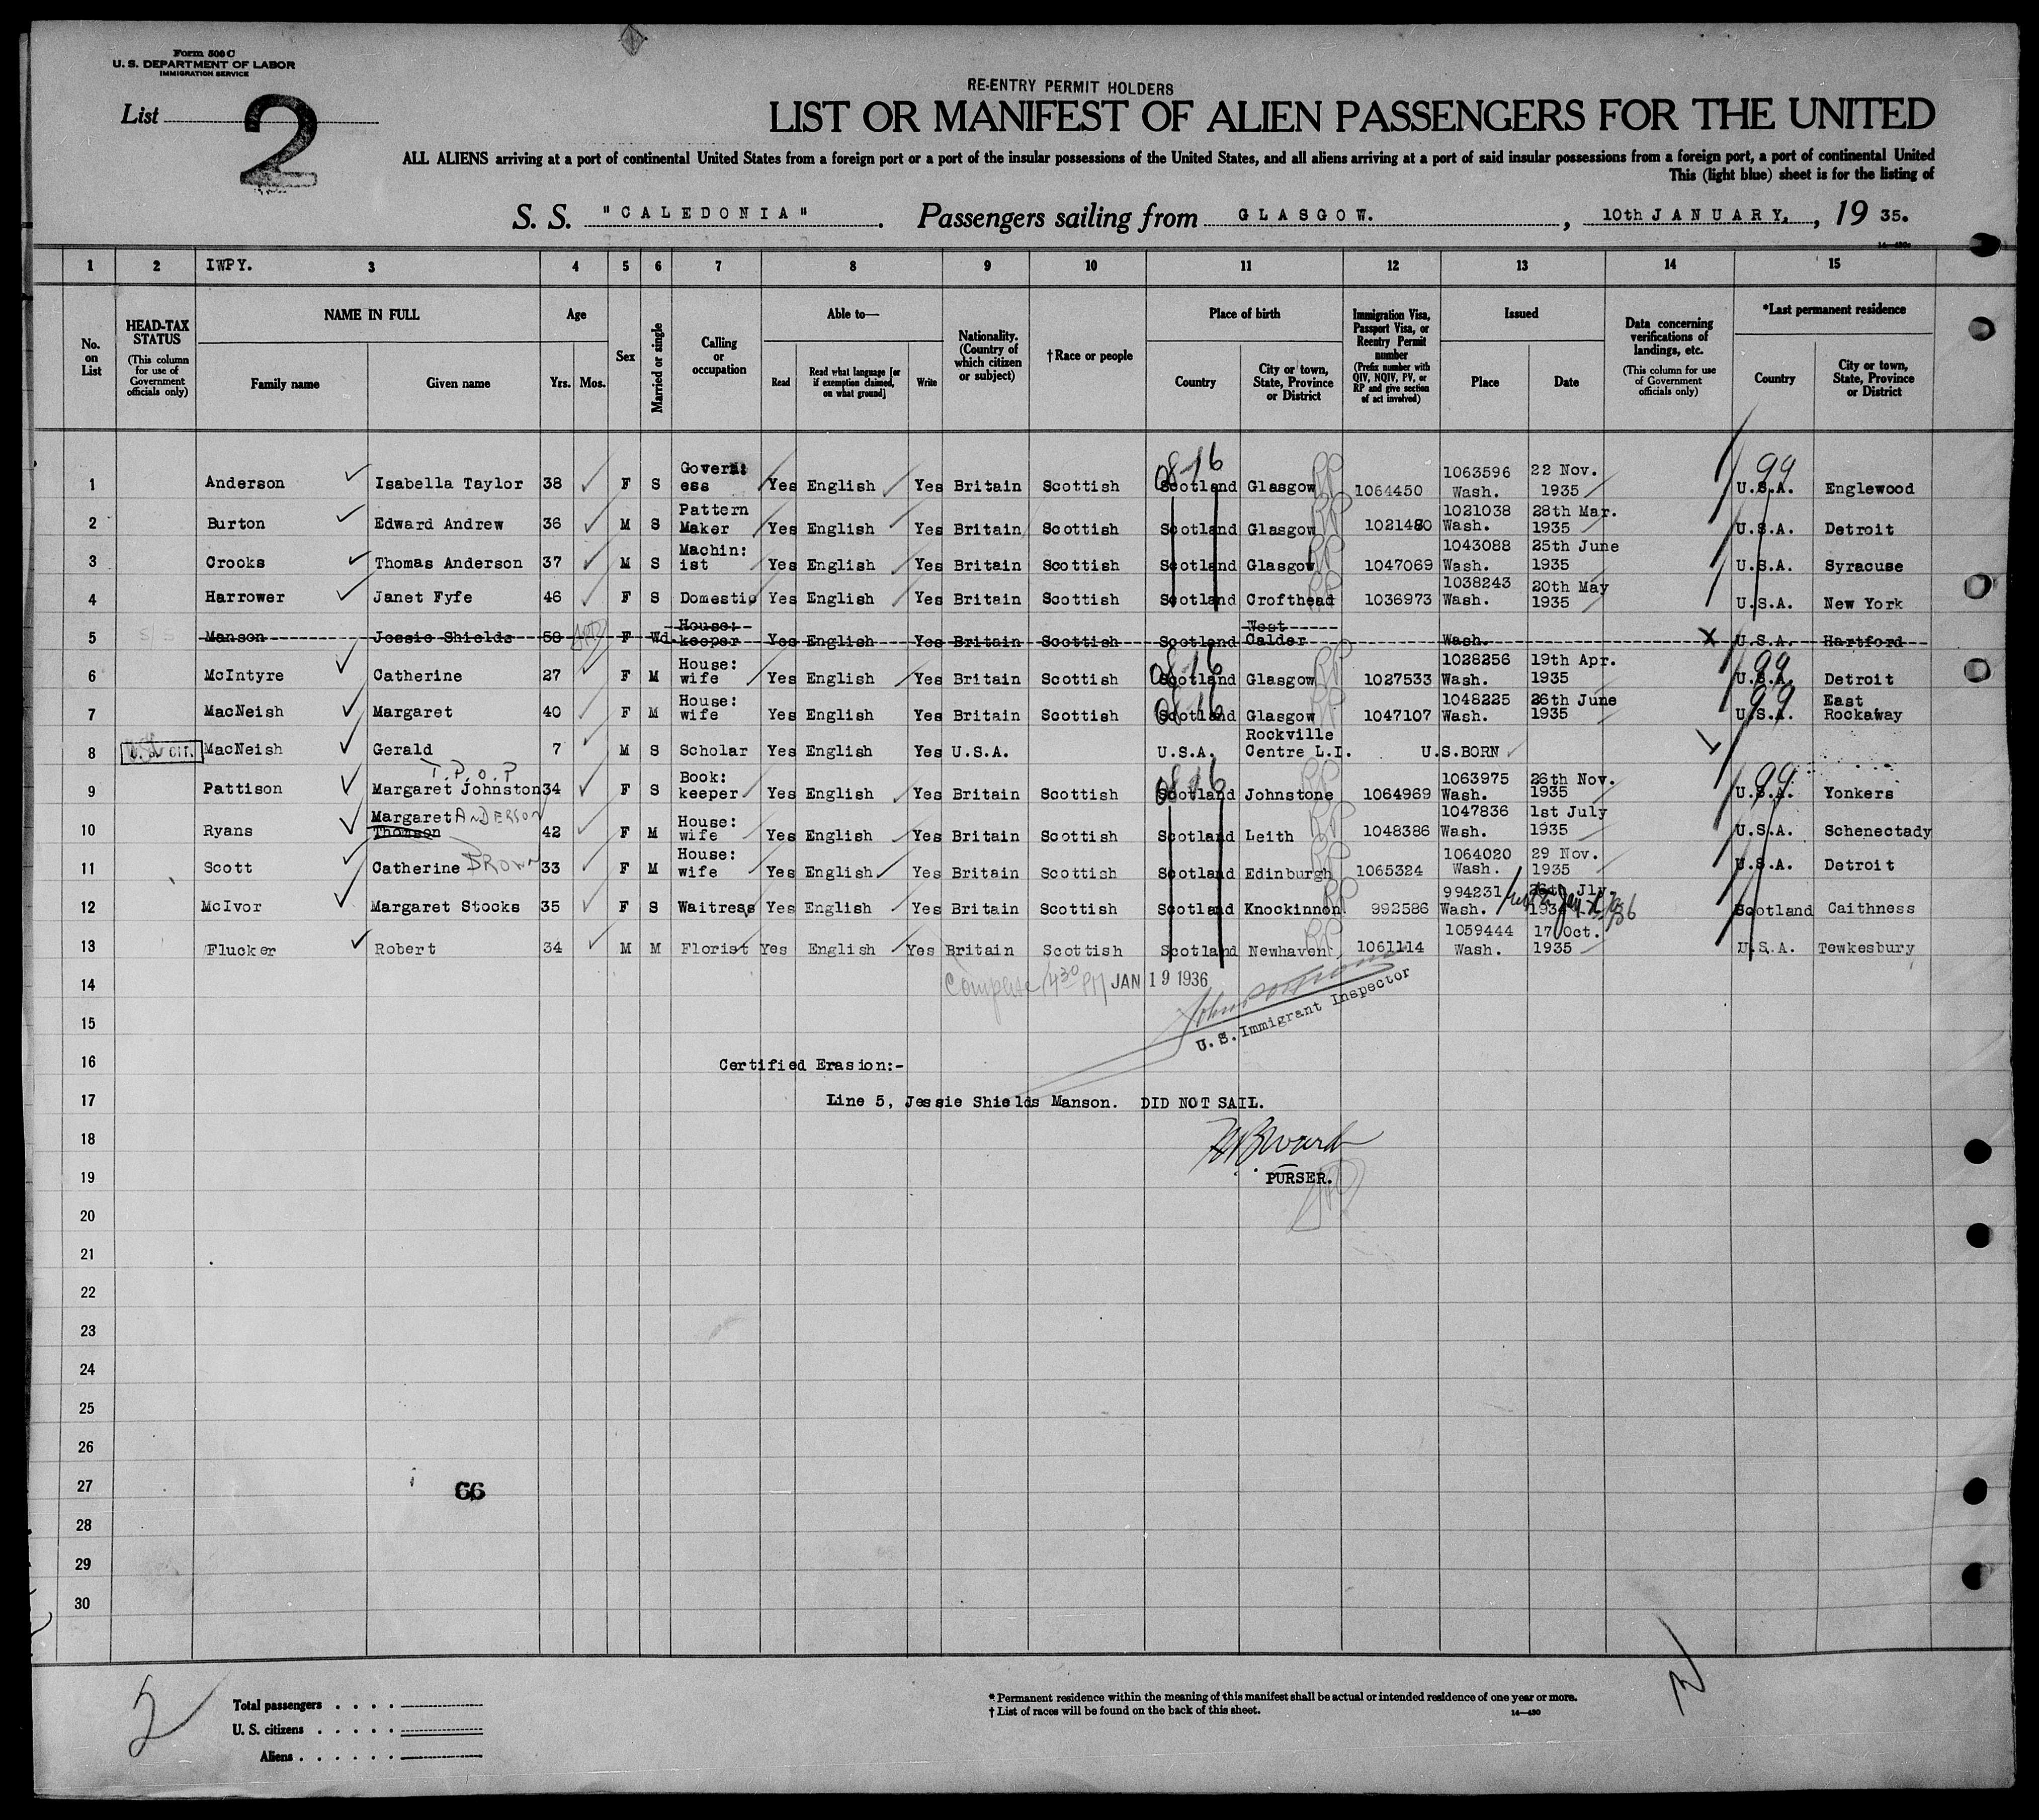 Form 500 C
U. S. DEPARTMENT OF LABOR
IMMIGRATION SERVICE
List 2
RE-ENTRY PERMIT HOLDERS
LIST OR MANIFEST OF ALIEN PASSENGERS FOR THE UNITED
ALL ALIENS arriving at a port of continental United States from a foreign port or a port of the insular possessions of the United States, and all aliens arriving at a port of said insular possessions from a foreign port, a port of continental United
This (light blue) sheet is for the listing of
S. S. "CALEDONIA". Passengers sailing from GLASGOW., 10th JANUARY., 19 35.
14—430
1 2 IWPY. 3 4 5 6 7 8 9 10 11 12 13 14 15
No. on List
HEAD-TAX STATUS (This column for use of Government officials only)
NAME IN FULL Family name Given name
Age Yrs. Mos.
Sex
Married or single
Calling or occupation
Able to— Read Read what language [or if exemption claimed, on what ground] Write
Nationality. (Country of which citizen or subject)
†Race or people
Place of birth Country City or town, State, Province or District
Immigration Visa, Passport Visa, or Reentry Permit number (Prefix number with QIV, NQIV, PV, or RP and give section of act involved)
Issued Place Date
Data concerning verifications of landings, etc. (This column for use of Government officials only)
*Last permanent residence Country City or town, State, Province or District
1 Anderson Isabella Taylor 38 F S Govern: ess Yes English Yes Britain Scottish 0816 Scotland Glasgow RP 1064450 1063596 Wash. 22 Nov. 1935 99 U.S.A. Englewood
2 Burton Edward Andrew 36 M S Pattern Maker Yes English Yes Britain Scottish Scotland Glasgow RP 1021480 1021038 Wash. 28th Mar. 1935 U.S.A. Detroit
3 Crooks Thomas Anderson 37 M S Machin: ist Yes English Yes Britain Scottish Scotland Glasgow RP 1047069 1043088 Wash. 25th June 1935 U.S.A. Syracuse
4 Harrower Janet Fyfe 46 F S Domestic Yes English Yes Britain Scottish Scotland Crofthead RP 1036973 1038243 Wash. 20th May 1935 U.S.A. New York
5 Manson Jessie Shields 58 F Wd. House: keeper Yes English Yes Britain Scottish Scotland West Calder Wash. X U.S.A. Hartford
6 McIntyre Catherine 27 F M House: wife Yes English Yes Britain Scottish 0816 Scotland Glasgow RP 1027533 1028256 Wash. 19th Apr. 1935 99 U.S.A. Detroit
7 MacNeish Margaret 40 F M House: wife Yes English Yes Britain Scottish 0816 Scotland Glasgow RP 1047107 1048225 Wash. 26th June 1935 99 U.S.A. East Rockaway
8 U. S. CIT. MacNeish Gerald 7 M S Scholar Yes English Yes U.S.A. U.S.A. Rockville Centre L.I. U.S.BORN
T.P.O.P
9 Pattison Margaret Johnston 34 F S Book: keeper Yes English Yes Britain Scottish 0816 Scotland Johnstone RP 1064969 1063975 Wash. 26th Nov. 1935 99 U.S.A. Yonkers
10 Ryans Margaret ANDERSON Thomson 42 F M House: wife Yes English Yes Britain Scottish Scotland Leith RP 1048386 1047836 Wash. 1st July 1935 U.S.A. Schenectady
11 Scott Catherine BROWN 33 F M House: wife Yes English Yes Britain Scottish Scotland Edinburgh RP 1065324 1064020 Wash. 29 Nov. 1935 U.S.A. Detroit
12 McIvor Margaret Stocks 35 F S Waitress Yes English Yes Britain Scottish Scotland Knockinnon RP 992586 994231 Wash. 26th Jly. 1934 Scotland Caithness
13 Flucker Robert 34 M M Florist Yes English Yes Britain Scottish Scotland Newhaven RP 1061114 1059444 Wash. 17 Oct. 1935 U.S.A. Tewkesbury
14 Complete 4 30 PM JAN 19 1936
15 U. S. Immigrant Inspector
16 Certified Erasion:-
17 Line 5, Jessie Shields Manson. DID NOT SAIL.
18
19 PURSER.
20
21
22
23
24
25
26
27 66
28
29
30
2
Total passengers
U. S. citizens
Aliens
* Permanent residence within the meaning of this manifest shall be actual or intended residence of one year or more.
† List of races will be found on the back of this sheet.
14—430
2